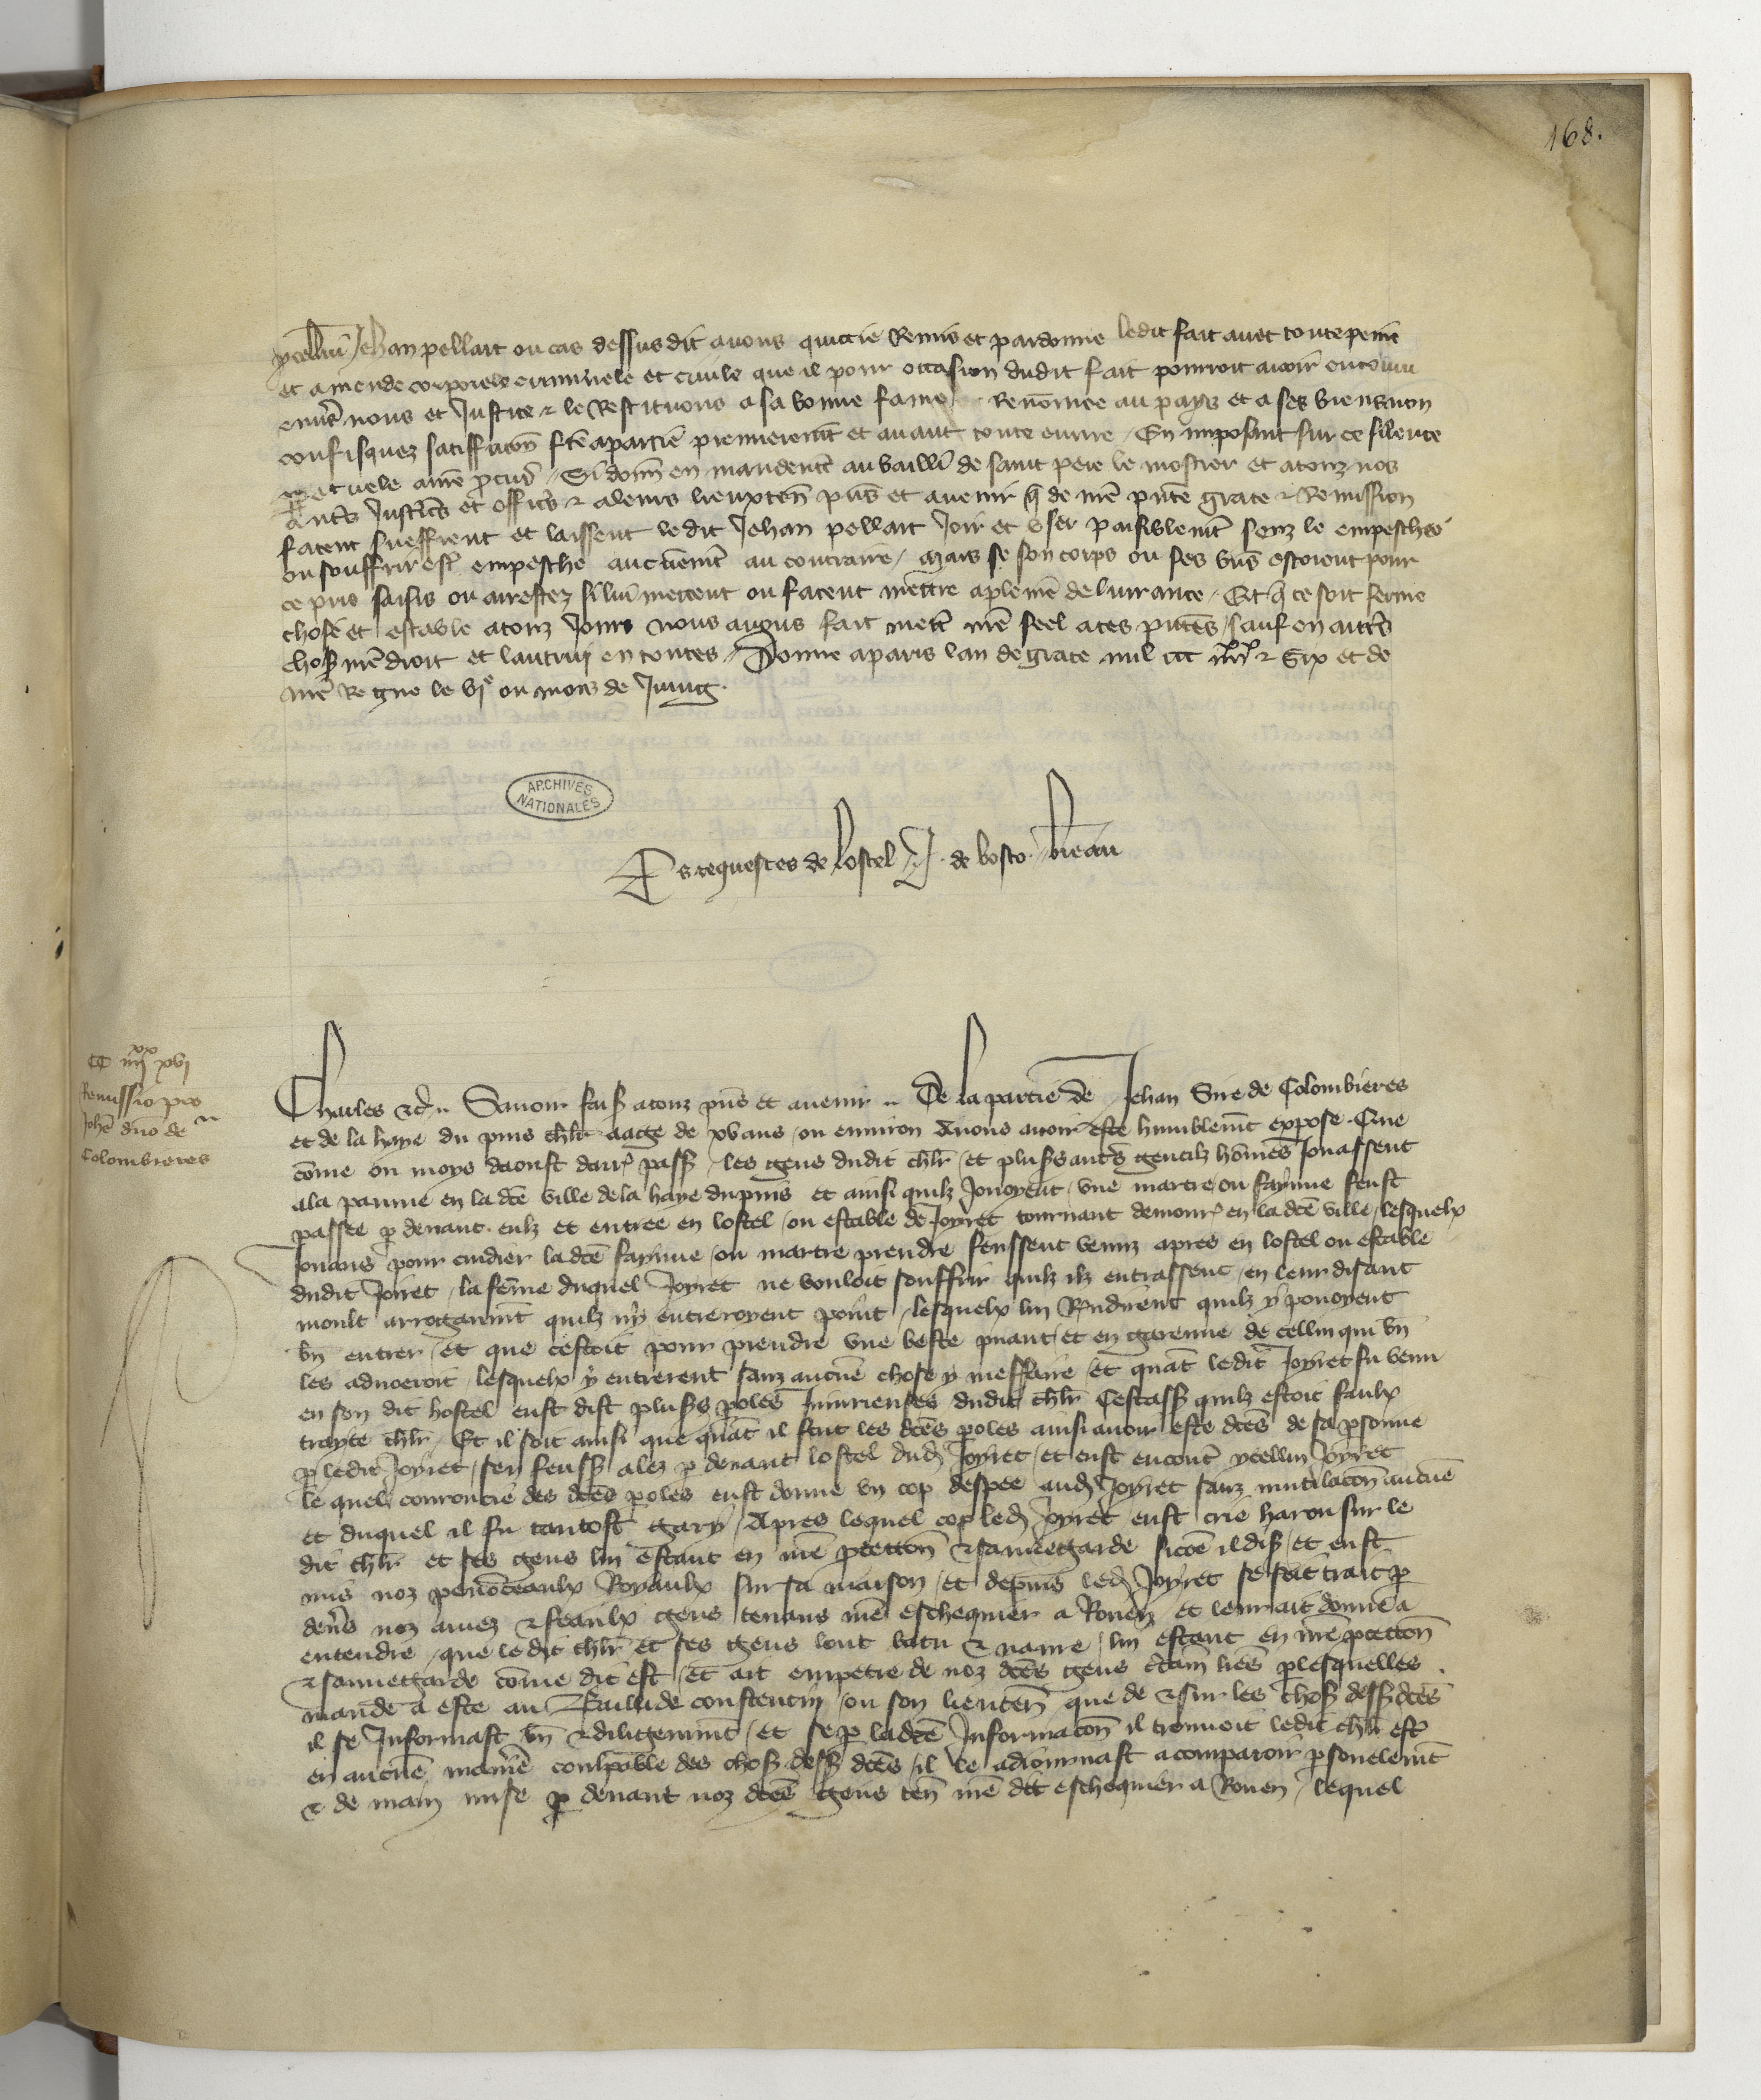 168.
ycellui Jehan pellart ou cas dessus dit avons quictie Remis et pardonne ledit fait avec toute peine
et amende corporele criminele et civile que il pour occasion dudit fait pourroit avoir encouru
envers nous et Justice & le Restituons a sa bonne fame Renomee au pays et a ses biens non
confisquez satiffacon fte a partie premierement et avant toute euvre / En imposant sur ce silence
perpetuele a nre pcur / Si donn en mandement au bailli de saint pere le mostier et a touz nos
autres Justices et offics & a leurs lieuxten pns et avenir q de nre pnte grace & Remission
facent sueffrent et laissent ledit Jehan pellart Joir et user paisiblemt senz le empescher
ou souffrir estre empesche aucunemt au contraire / mais se son corps ou ses biens estoient pour
ce pris saisis ou arrestez si lui mettent ou facent mettre a plaine delivrance / Et q ce soit ferme
chose et estable a touz Jours nous avons fait mettre nre seel a ces pntes / sauf en autres
choses nre droit et lautruy en toutes / Donne a paris lan de grace mil ccc iiijxx & Six et de
nre Regne le vje ou mois de Juing.
ARCHIVES
NATIONALES
Es requestes de lostel J. de bosco. bueau
CC iiijxx xvj
Remissio pro
Johe dno de
Colombieres
Charles &c. Savoir faiss a touz pns et avenir .. De la partie de Jehan Sire de Colombieres
et de la haye du puis chlr aage de xv ans / ou environ Avons avoir este humblemt expose. Que
comme ou moys daoust darr pass / les gens dudit chlr / et pluss autres gentilz hommes Jouassent
a la paume en la dce ville de la haye du puis et ainsi quilz Jouoyent / une martre ou fayinne feust
passee p devant eulz et entree en lostel / ou estable de Joyret tournant demour en la dce ville / lesquelx
Jouans pour cuidier la dce fayinne / ou martre prendre feussent venuz apres en lostel ou estable
dudit Joiret / la femme duquel Joyret ne vouloit souffrir quilz ilz entrassent / en leur disant
moult arroganmt quilz ny entreroyent point / lesquelx lui Rndirent quilz y pouoyent
bn entrer / et que cestoit pour prendre une beste puant / et en garenne de cellui qui bn
les advoeroit / lesquelx y entrerent sanz aucune chose y meffaire / Et quant ledit Joyret fu venu
en son dit hostel eust dist pluss poles Jniurieuses dudit chlr Cestass quilz estoit faulx
trayte chlr / Et il soit ainsi que quant il scut les dces poles ainsi avoir este dces de sa psonne
p ledit Joyret / sen feuss alez p devant lostel dud Joyret / et eust encontre ycellui Joyret
le quel couroucie des dces poles eust donne un cop despee aud Joyret sanz mutilacon aucune
et duquel il fu tantost gary / Apres lequel cop led Joyret eust crie harou sur le
dit chlr et ses gens lui estant en nre pteccon & sauvegarde sicome il dis / et eust
mis noz penonceaulx Royaulx sur sa maison / et depuis led Joyret se soit trait p
devers noz amez & feaulx gens tenans nre eschequier a Rouen / et leur ait donne a
entendre / que le dit chlr et ses gens lont batu & navre / lui estant en nre pteccon
& sauvegarde come dit est / et ait empetre de noz dces gens certain lres p lesquelles
mande a este au Bailli de constentin / ou son lieuten / que de & sur les choss dess dces
il se Jnformast bn & diligemmt / et se p la dce Jnformacon il trouvoit ledit chlr estre
en aucune maniere coulpable des choss dess dces / il le adiournast a comparoir psonelemt
& de main mise p devant noz dces gens ten nre dit eschequier a Rouen / lequel